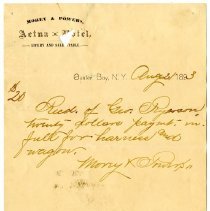 MOREY & POWERS,
Aetna Hotel,
LIVERY AND SALE STABLE.
Oyster Bay, N.Y. Aug 1893
$20
Recd. of Geo. Ryerson
twenty dollars paymt. in
full for harness and
wagon.
Morey & Powers